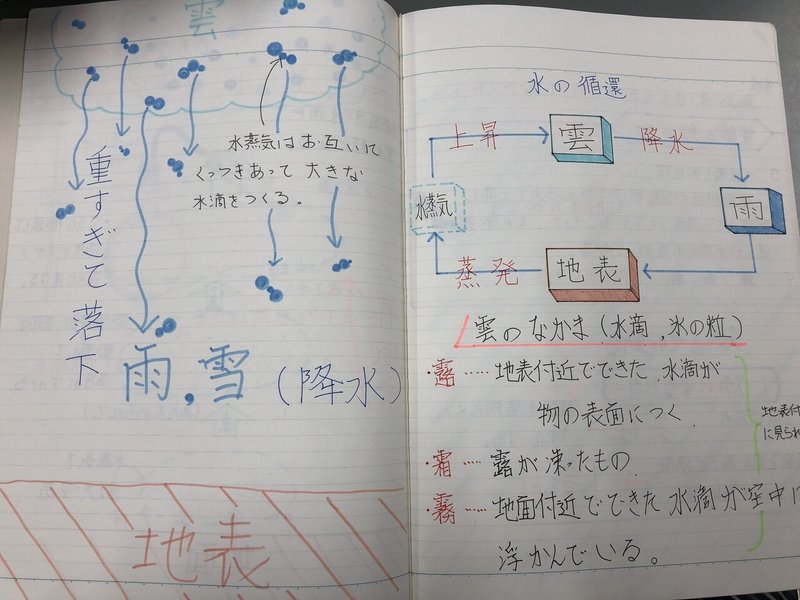 雲
水蒸気はお互いに
くっつきあって大きな
水滴をつくる。
重すぎて落下
雨,雪(降水)
地表
水の循環
上昇 雲 降水
水蒸気 雨
蒸発 地表
雲のなかま(水滴,氷の粒)
・露……地表付近でできた水滴が
物の表面につく
・霜……露が凍ったもの
・霧……地面付近でできた水滴が空中に
浮かんでいる。
地表付
に見られ